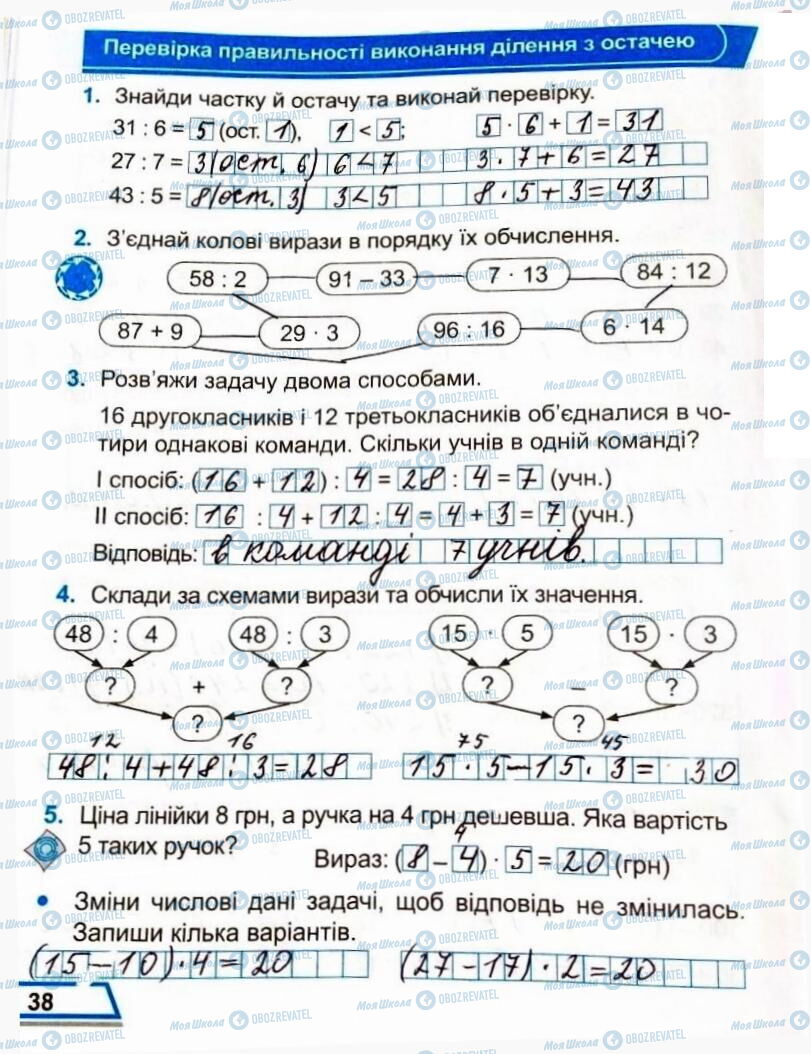 Перевірка правильності виконання ділення з остачею
1. Знайди частку й остачу та виконай перевірку.
31 : 6 = 5 (ост. 1), 1 < 5; 5 · 6 + 1 = 31
27 : 7 = 3(ост. 6) 6<7 3·7+6=27
43 : 5 = 8(ост. 3) 3<5 8·5+3=43
2. З'єднай колові вирази в порядку їх обчислення.
58 : 2 91 – 33 7 · 13 84 : 12
87 + 9 29 · 3 96 : 16 6 · 14
3. Розв'яжи задачу двома способами.
16 другокласників і 12 третьокласників об'єдналися в чо-
тири однакові команди. Скільки учнів в одній команді?
І спосіб: (16 + 12) : 4 = 28 : 4 = 7 (учн.)
ІІ спосіб: 16 : 4 + 12 : 4 = 4 + 3 = 7 (учн.)
Відповідь: в команді 7 учнів.
4. Склади за схемами вирази та обчисли їх значення.
48 : 4 48 : 3 15 · 5 15 · 3
? + ? ? – ?
? ?
12 16 75 45
48:4+48:3=28 15·5–15·3= 30
5. Ціна лінійки 8 грн, а ручка на 4 грн дешевша. Яка вартість
5 таких ручок?
4
Вираз: (8 – 4) · 5 = 20 (грн)
• Зміни числові дані задачі, щоб відповідь не змінилась.
Запиши кілька варіантів.
(15–10)·4=20 (27–17)·2=20
38
МояШкола OBOZREVATEL